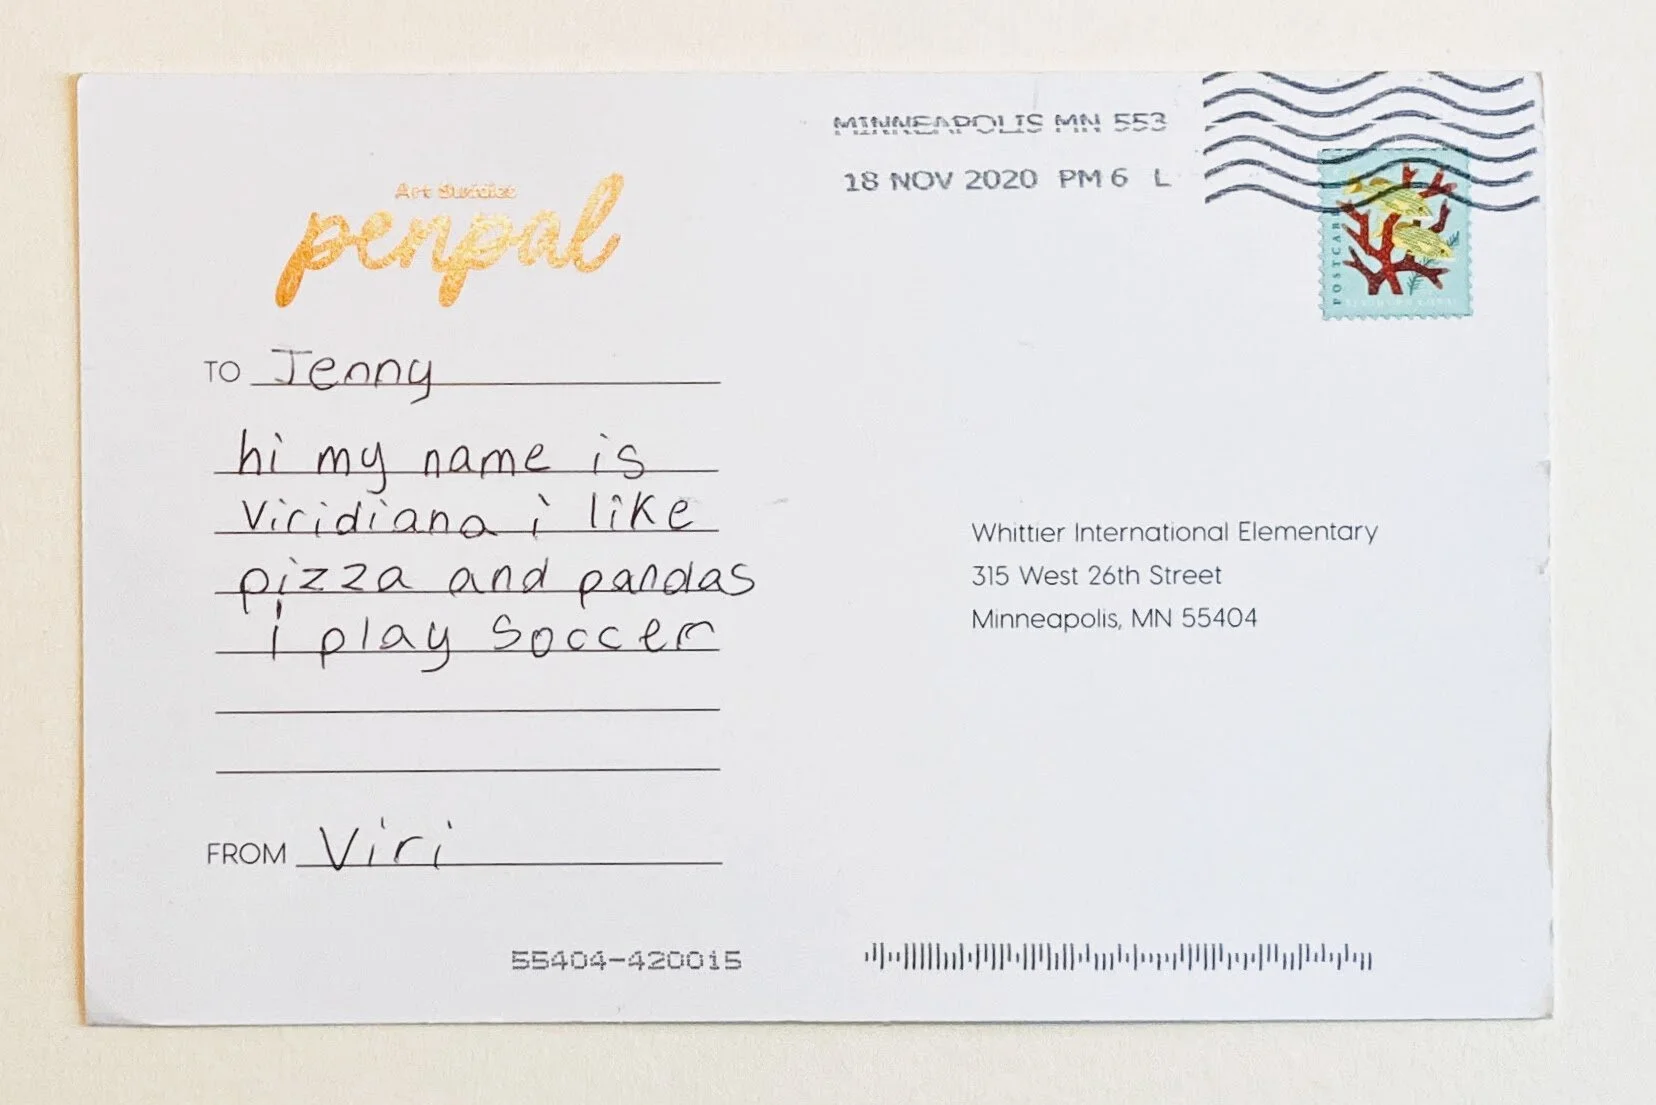 MINNEAPOLIS MN 553
18 NOV 2020 PM 6 L
POSTCARD
Art Buddies
penpal
TO Jenny
hi my name is
Viridiana i like
pizza and pandas
i play soccer
FROM Viri
Whittier International Elementary
315 West 26th Street
Minneapolis, MN 55404
55404-420015